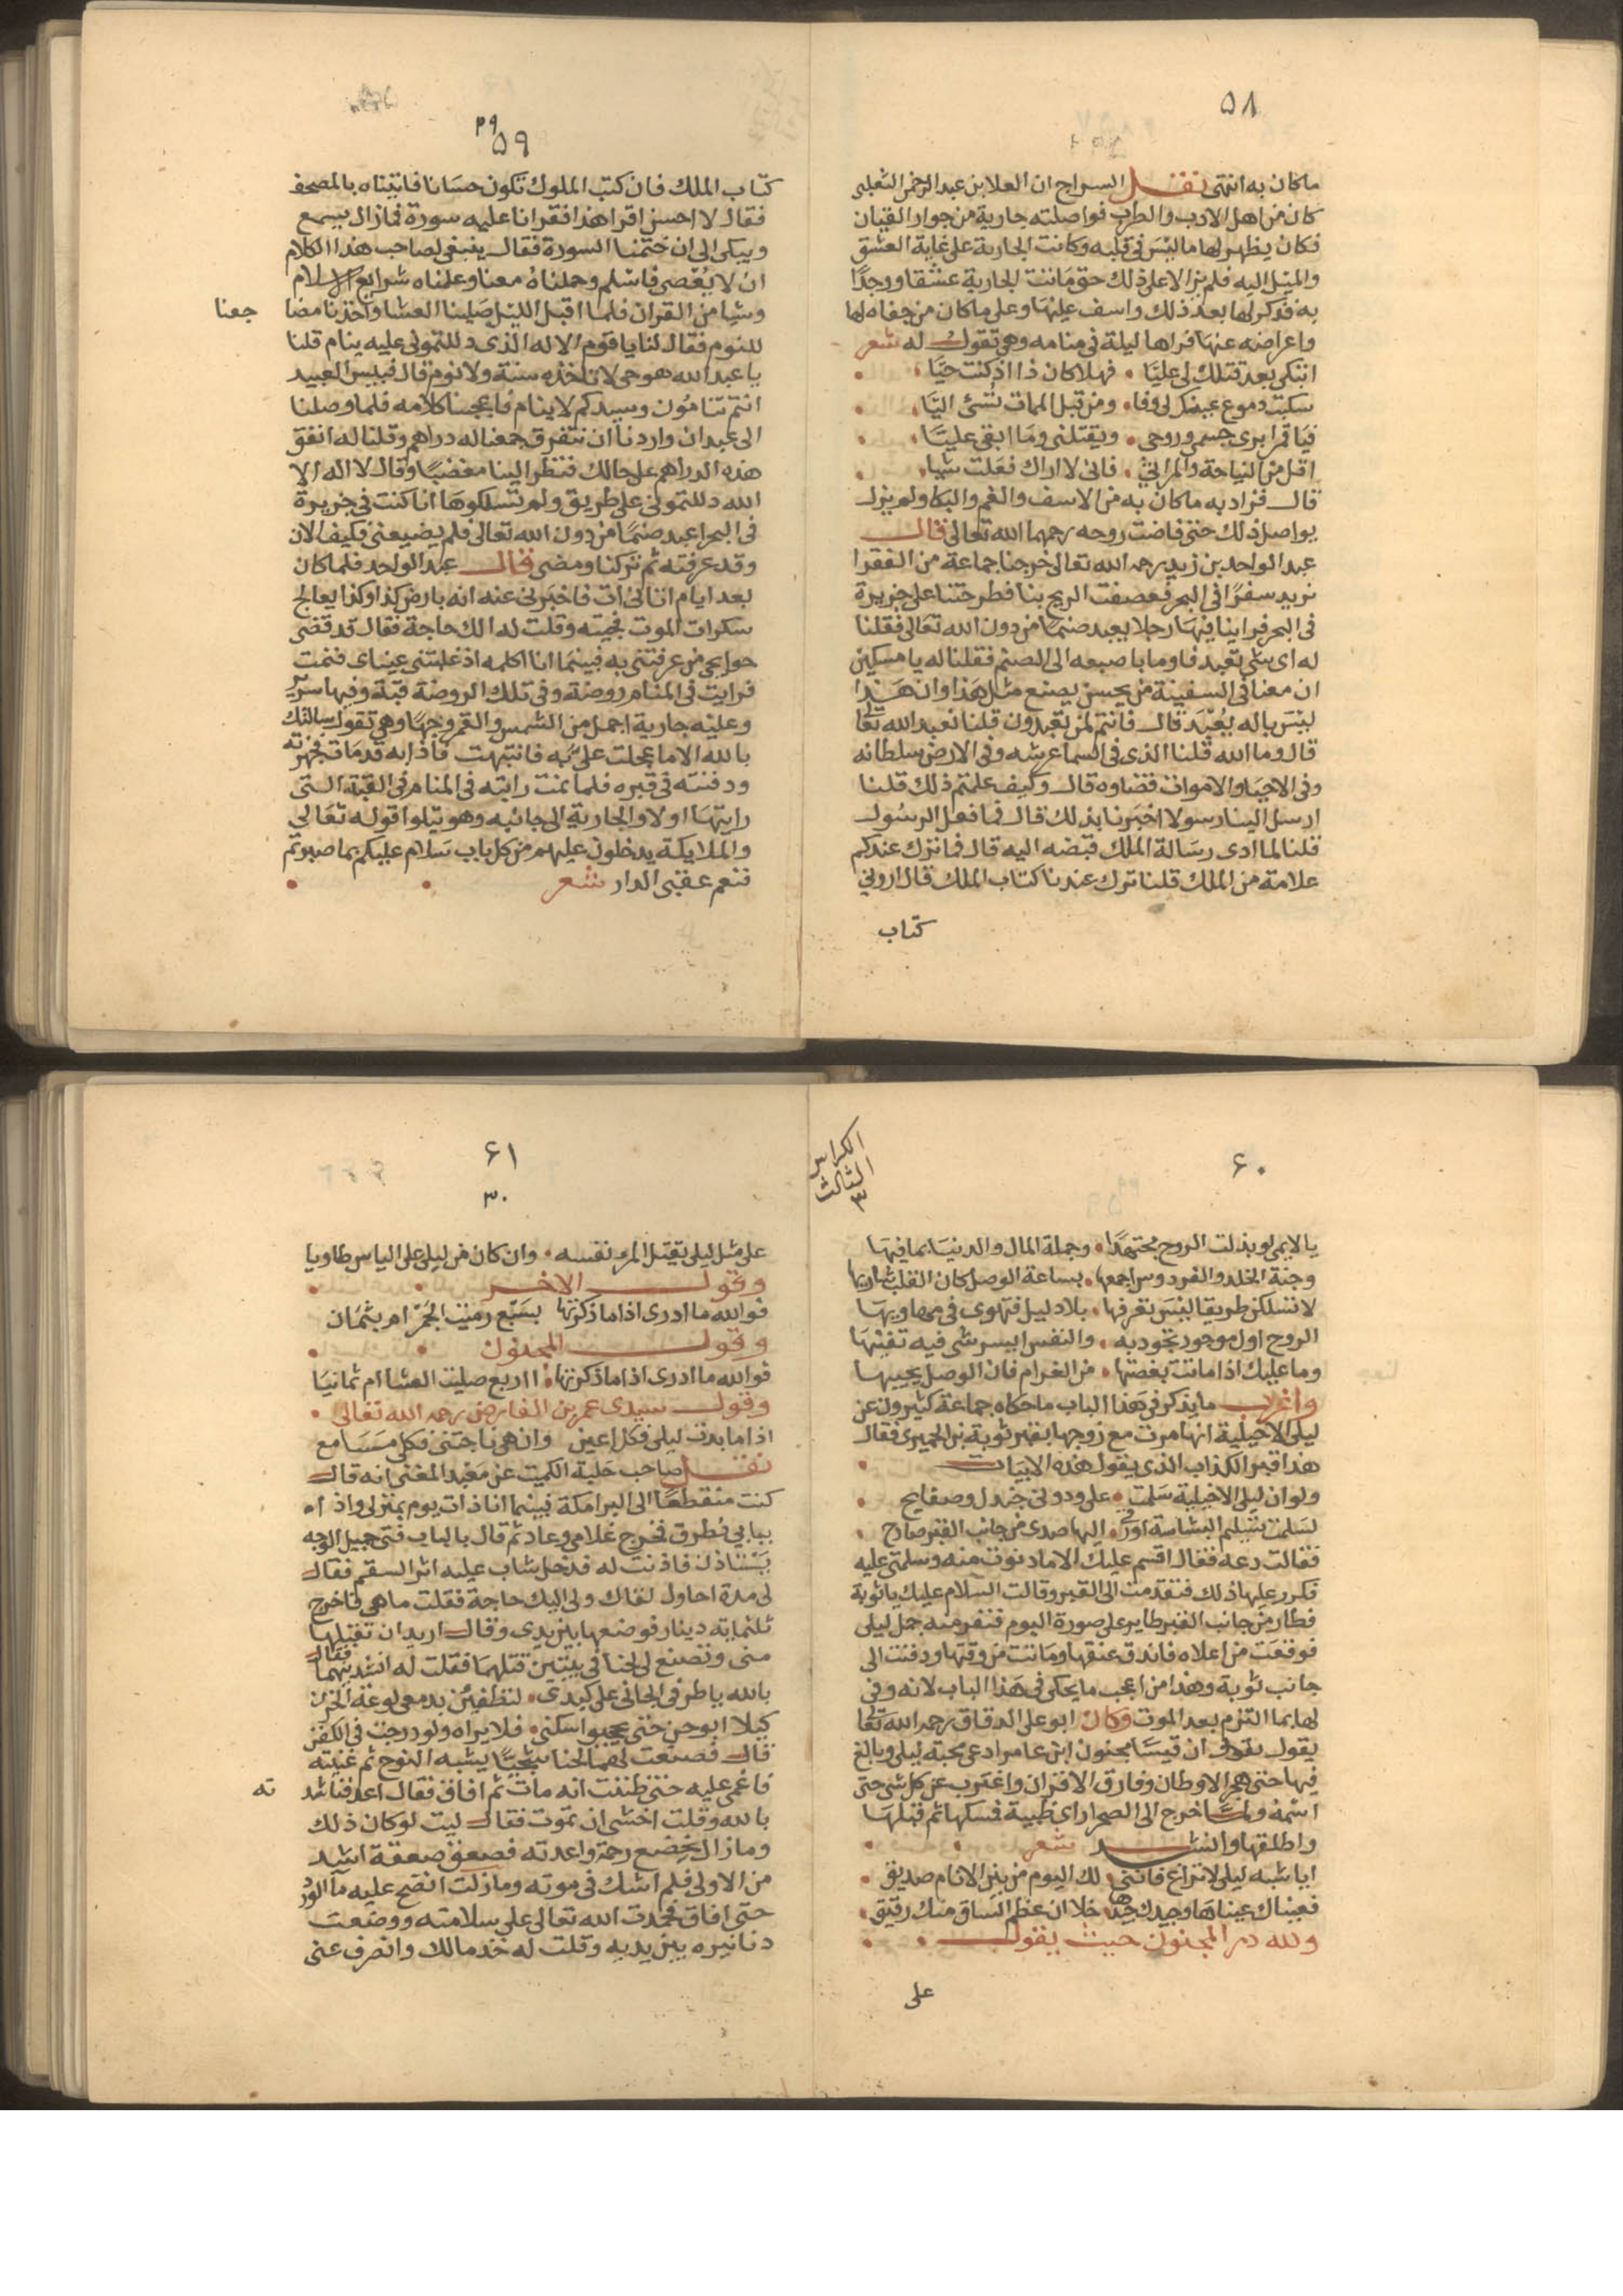 ٥٨
ماكان به انتهى نقل السراج ان العلا بن عبد الرحمن التغلبى
كان من اهل الادب والطرب فواصلته جارية من جوار القيان
فكان يظهر لها ما ليس فى قلبه وكانت الجارية على غاية العشق
والميل اليه فلم يزالا على ذلك حتى ماتت الجارية عشقا ووجدًا
به فذكر لها بعد ذلك واسف عليها وعلى ما كان من جفاه لها
واعراضه عنها فراها ليلة فى منامه وهى تقول له شعر
اتبكى بعد قتلك لى عليّا فهلا كان ذا اذ كنت حيّا
سكبت دموع عينك لى وفا ومن قبل الممات تُسئ اليّا
فيا قمرا برى جسمى وروحى ويقتلنى وما ابقى عليّا
اقل من النياحة والمراثى فانى لا اراك فعلت شيا
قال فزاد به ما كان به من الاسف والغم والبكا ولم يزل
يواصل ذلك حتى فاضت روحه رحمهما الله تعالى قال
عبد الواحد بن زيد رحمه الله تعالى خرجنا جماعة من الفقرا
نريد سفرًا فى البحر فعصفت الريح بنا فطرحتنا على جزيرة
فى البحر فراينا فيها رجلا يعبد صنمًا من دون الله تعالى فقلنا
له اى شى تعبد فاوما باصبعه الى الصنم فقلنا له يا مسكين
ان معنا فى السفينة من يحسن يصنع مثل هذا وان هذا
ليس باله يُعبد قال فانتم لمن تعبدون قلنا نعبد الله تعالى
قال وما الله قلنا الذى فى السما عرشه وفى الارض سلطانه
وفى الاحيا والاموات قضاوه قال وكيف علمتم ذلك قلنا
ارسل الينا رسولا اخبرنا بذلك قال فما فعل الرسول
قلنا لما ادى رسالة الملك قبضه اليه قال فما ترك عندكم
علامة من الملك قلنا ترك عندنا كتاب الملك قال ارونى
كتاب
٢٩
٥٩
كتاب الملك فان كتب الملوك تكون حسانا فاتيناه بالمصحف
فقال لا احسن اقرا هذا فقرانا عليه سورة فما زال يسمع
ويبكى الى ان ختمنا السورة فقال ينبغى لصاحب هذا الكلام
ان لا يُعصى فاسلم وحملناه معنا وعلمناه شرايع الاسلام
وشيا من القران فلما اقبل الليل صلينا العشا واخذنا مضا جعنا
للنوم فقال لنا يا قوم الاله الذى دللتمونى عليه ينام قلنا
يا عبد الله هو حى لا تاخذه سنة ولا نوم قال فبيس العبيد
انتم تنامون وسيدكم لا ينام فاعجبنا كلامه فلما وصلنا
الى عبدان واردنا ان نتفرق جمعنا له دراهم وقلنا له انفق
هذه الدراهم على حالك فنظر الينا مغضبًا وقال لا اله الا
الله دللتمونى على طريق ولم تسلكوها انا كنت فى جزيرة
فى البحر اعبد صنمًا من دون الله تعالى فلم يضيعنى فكيف الان
وقد عرفته ثم تركنا ومضى قال عبد الواحد فلما كان
بعد ايام اتانى ات فاخبرنى عنه انه بارض كذا وكذا يعالج
سكرات الموت فجيته وقلت له الك حاجة فقال قد قضى
حوايجى من عرفتنى به فبينما انا اكلمه اذ غلبتنى عيناى فنمت
فرايت فى المنام روضة وفى تلك الروضة قبة وفيها سرير
وعليه جارية اجمل من الشمس والقمر وجهًا وهى تقول سالتك
بالله الا ما عجلت علىّ به فانتبهت فاذا به قد مات فجهزته
ودفنته فى قبره فلما نمت رايته فى المنام فى القبة التى
رايتها اولا والجارية الى جانبه وهو يتلوا قوله تعالى
والملايكة يدخلون عليهم من كل باب سلام عليكم بما صبرتم
فنعم عقبى الدار شعر
٦٠
الكراس
الثالث
٣
يا لايمى لو بذلت الروح مجتهدًا وجملة المال والدنيا بما فيها
وجنة الخلد والفردوس اجمعها بساعة الوصل كان القلب شاريها
لا تسلكن طريقا ليس تعرفها بلا دليل فتهوى فى مهاويها
الروح اول موجود تجود به والنفس ايسر شى فيه تفنيها
وما عليك اذا ماتت بغصتها من الغرام فان الوصل يحييها
واغرب ما يذكر فى هذا الباب ما حكاه جماعة كثيرون عن
ليلى الاخيلية انها مرت مع زوجها بقبر توبة بن الحميرى فقال
هذا قبر الكذاب الذى يقول هذه الابيات
ولو ان ليلى الاخيلية سلمت على ودونى جندل وصفايح
لسلمت تسليم البشاشة او زقى اليها صدى من جانب القبر صادح
فقالت دعه فقال اقسم عليك الا ما دنوت منه وسلمتى عليه
فكرر عليها ذلك فتقدمت الى القبر وقالت السلام عليك يا توبة
فطار من جانب القبر طاير على صورة اليوم فنفر منه جمل ليلى
فوقعت من اعلاه فاندق عنقها وماتت من وقتها ودفنت الى
جانب توبة وهذا من اعجب ما يحكى فى هذا الباب لانه وفى
لها بما التزم بعد الموت وكان ابو على الدقاق رحمه الله تعالى
يقول ان قيسًا مجنون ابن عامر ادعى محبة ليلى وبالغ
فيها حتى هجر الاوطان وفارق الاقران واغترب عن كل شى حتى
اسمه خرج الى الصحرا راى ظبية فمسكها ثم قبلها
واطلقها وانشد شعر
ايا شبه ليلى لا تراع فاننى لك اليوم من بين الانام صديق
فعيناك عيناها وجيدك جيدها خلا ان عظم الساق منك رقيق
ولله در المجنون حيث يقول
على
٦١
٣٠
على مثل ليلى يقتل المرء نفسه وان كان من ليلى على الياس طاويا
وقول الاخر
فوالله ما ادرى اذا ما ذكرتها بسبع رميت الجمر ام بثمان
وقول المجنون
فوالله ما ادرى اذا ما ذكرتها ااربع صليت العشا ام ثمانيا
وقول سيدى عمر بن الفارض رحمه الله تعالى
اذا ما بدت ليلى فكلى اعين وان هى ناجتنى فكلى مسامع
نقل صاحب حلبة الكميت عن معبد المغنى انه قال
كنت منقطعًا الى البرامكة فبينما انا ذات يوم بمنزلى واذ اه
ببابى يُطرق فخرج غلامى وعاد ثم قال بالباب فتى جميل الوجه
يستاذن فاذنت له فدخل شاب عليه اثر السقم فقال
لى مدة احاول لقاك ولى اليك حاجة فقلت ما هى فاخرج
ثلثماية دينار فوضعها بين يدى وقال اريد ان تقبلها
منى وتصنع لى لحنا فى بيتين قتلهما فقلت له انشدنيهما فقال
بالله يا طرفى الجانى على كبدى لتطفئن بدمعى لوعة الحزن
كيلا ابوحن حتى تحجبوا سكنى فلا يراه ولو درجت فى الكفن
قال فصنعت لهما لحنا يشبه النوح ثم غنيته
فاغمى عليه حتى ظننت انه مات ثم افاق فقال اعد فناشد ته
بالله وقلت اخشى ان تموت فقال ليت لو كان ذلك
وما زال يخضع رحمة واعدته فصعق صعقة اشد
من الاولى فلم اشك فى موته وما زلت انضح عليه مآ الورد
حتى افاق فحمدت الله تعالى على سلامته ووضعت
دنانيره بين يديه وقلت له خذ مالك وانصرف عنى